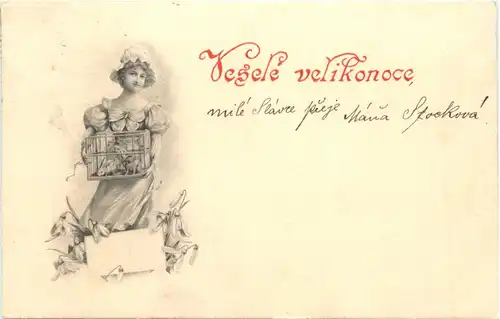 Veselé velikonoce,
milé Slávce přeje Máňa Stocková